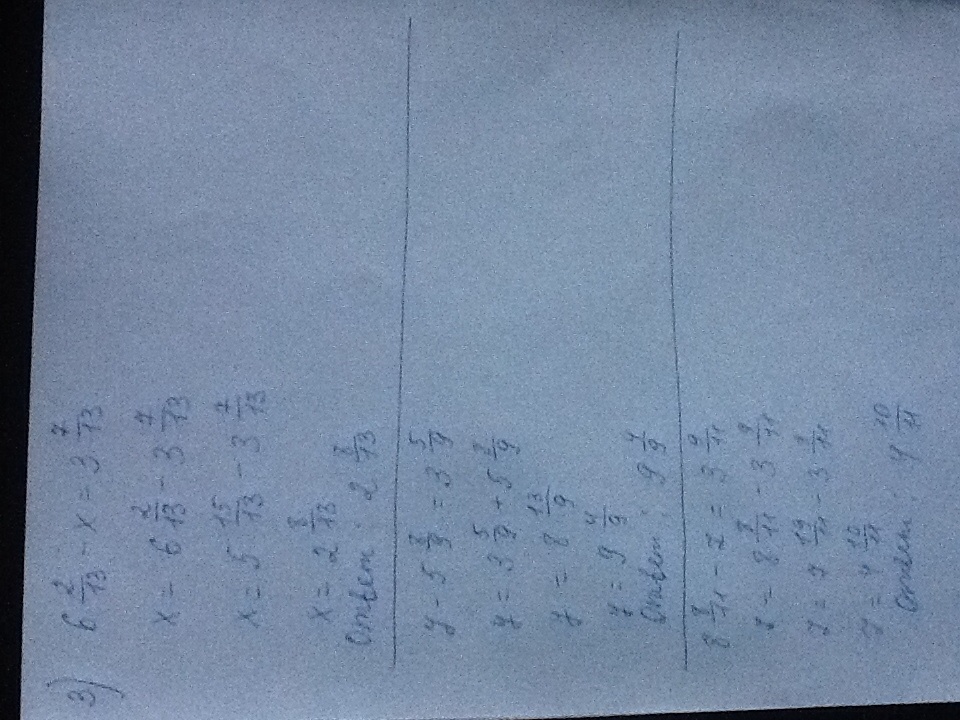 3) 6 2/13 - x = 3 7/13
x = 6 2/13 - 3 7/13
x = 5 15/13 - 3 7/13
x = 2 8/13
Ответ: 2 8/13
y - 5 8/9 = 3 5/9
y = 3 5/9 + 5 8/9
y = 8 13/9
y = 9 4/9
Ответ: 9 4/9
8 8/11 - z = 3 9/11
z = 8 8/11 - 3 9/11
z = 7 19/11 - 3 9/11
z = 4 10/11
Ответ: 4 10/11